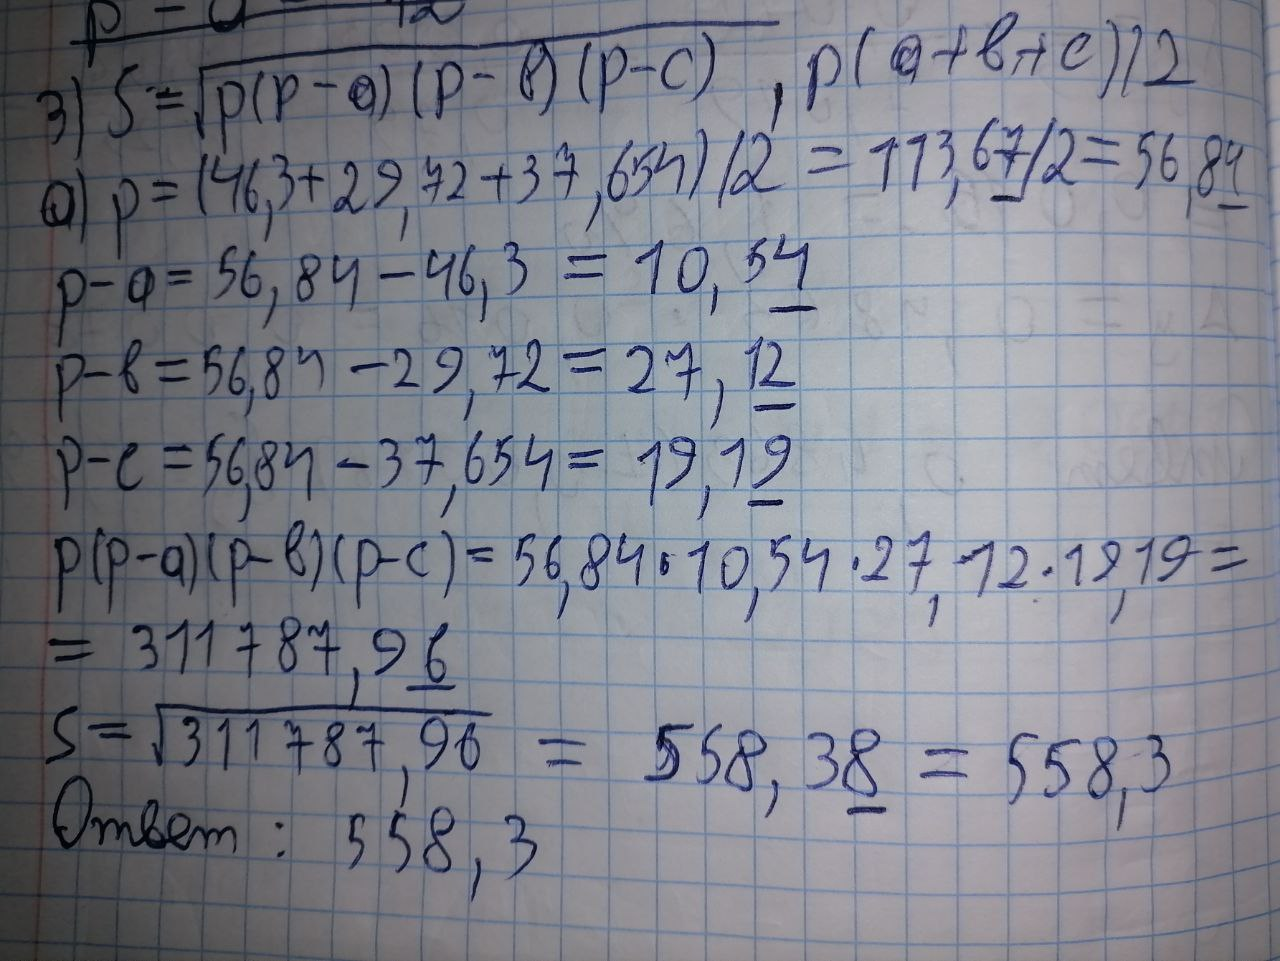 3) S=√p(p-a)(p-в)(p-c) , p(a+в+c)/2
a) p=(46,3+29,72+37,654)/2=113,67/2=56,84
p-a=56,84-46,3=10,54
p-в=56,84-29,72=27,12
p-c=56,84-37,654=19,19
p(p-a)(p-в)(p-c)=56,84·10,54·27,12·19,19=
=311787,96
S=√311787,96 = 558,38 = 558,3
Ответ: 558,3